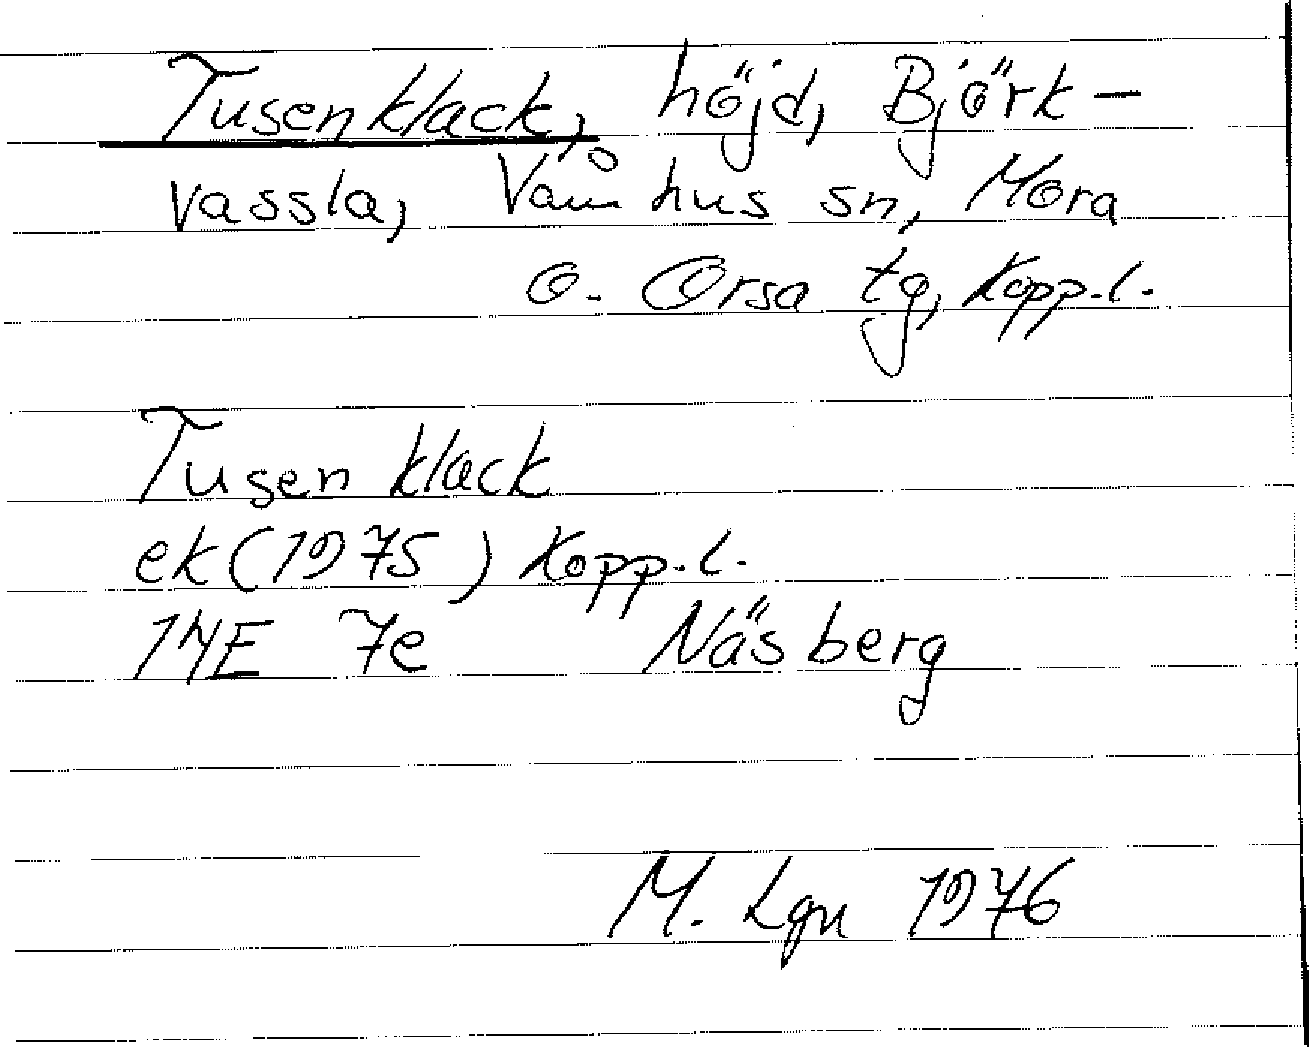 Tusenklack, höjd, Björk-
vassla, Våmhus sn, Mora
o. Orsa tg, Kopp.l.
Tusenklack
ek (1975) Kopp.l.
14E 7e Näsberg
M. Lgn 1976